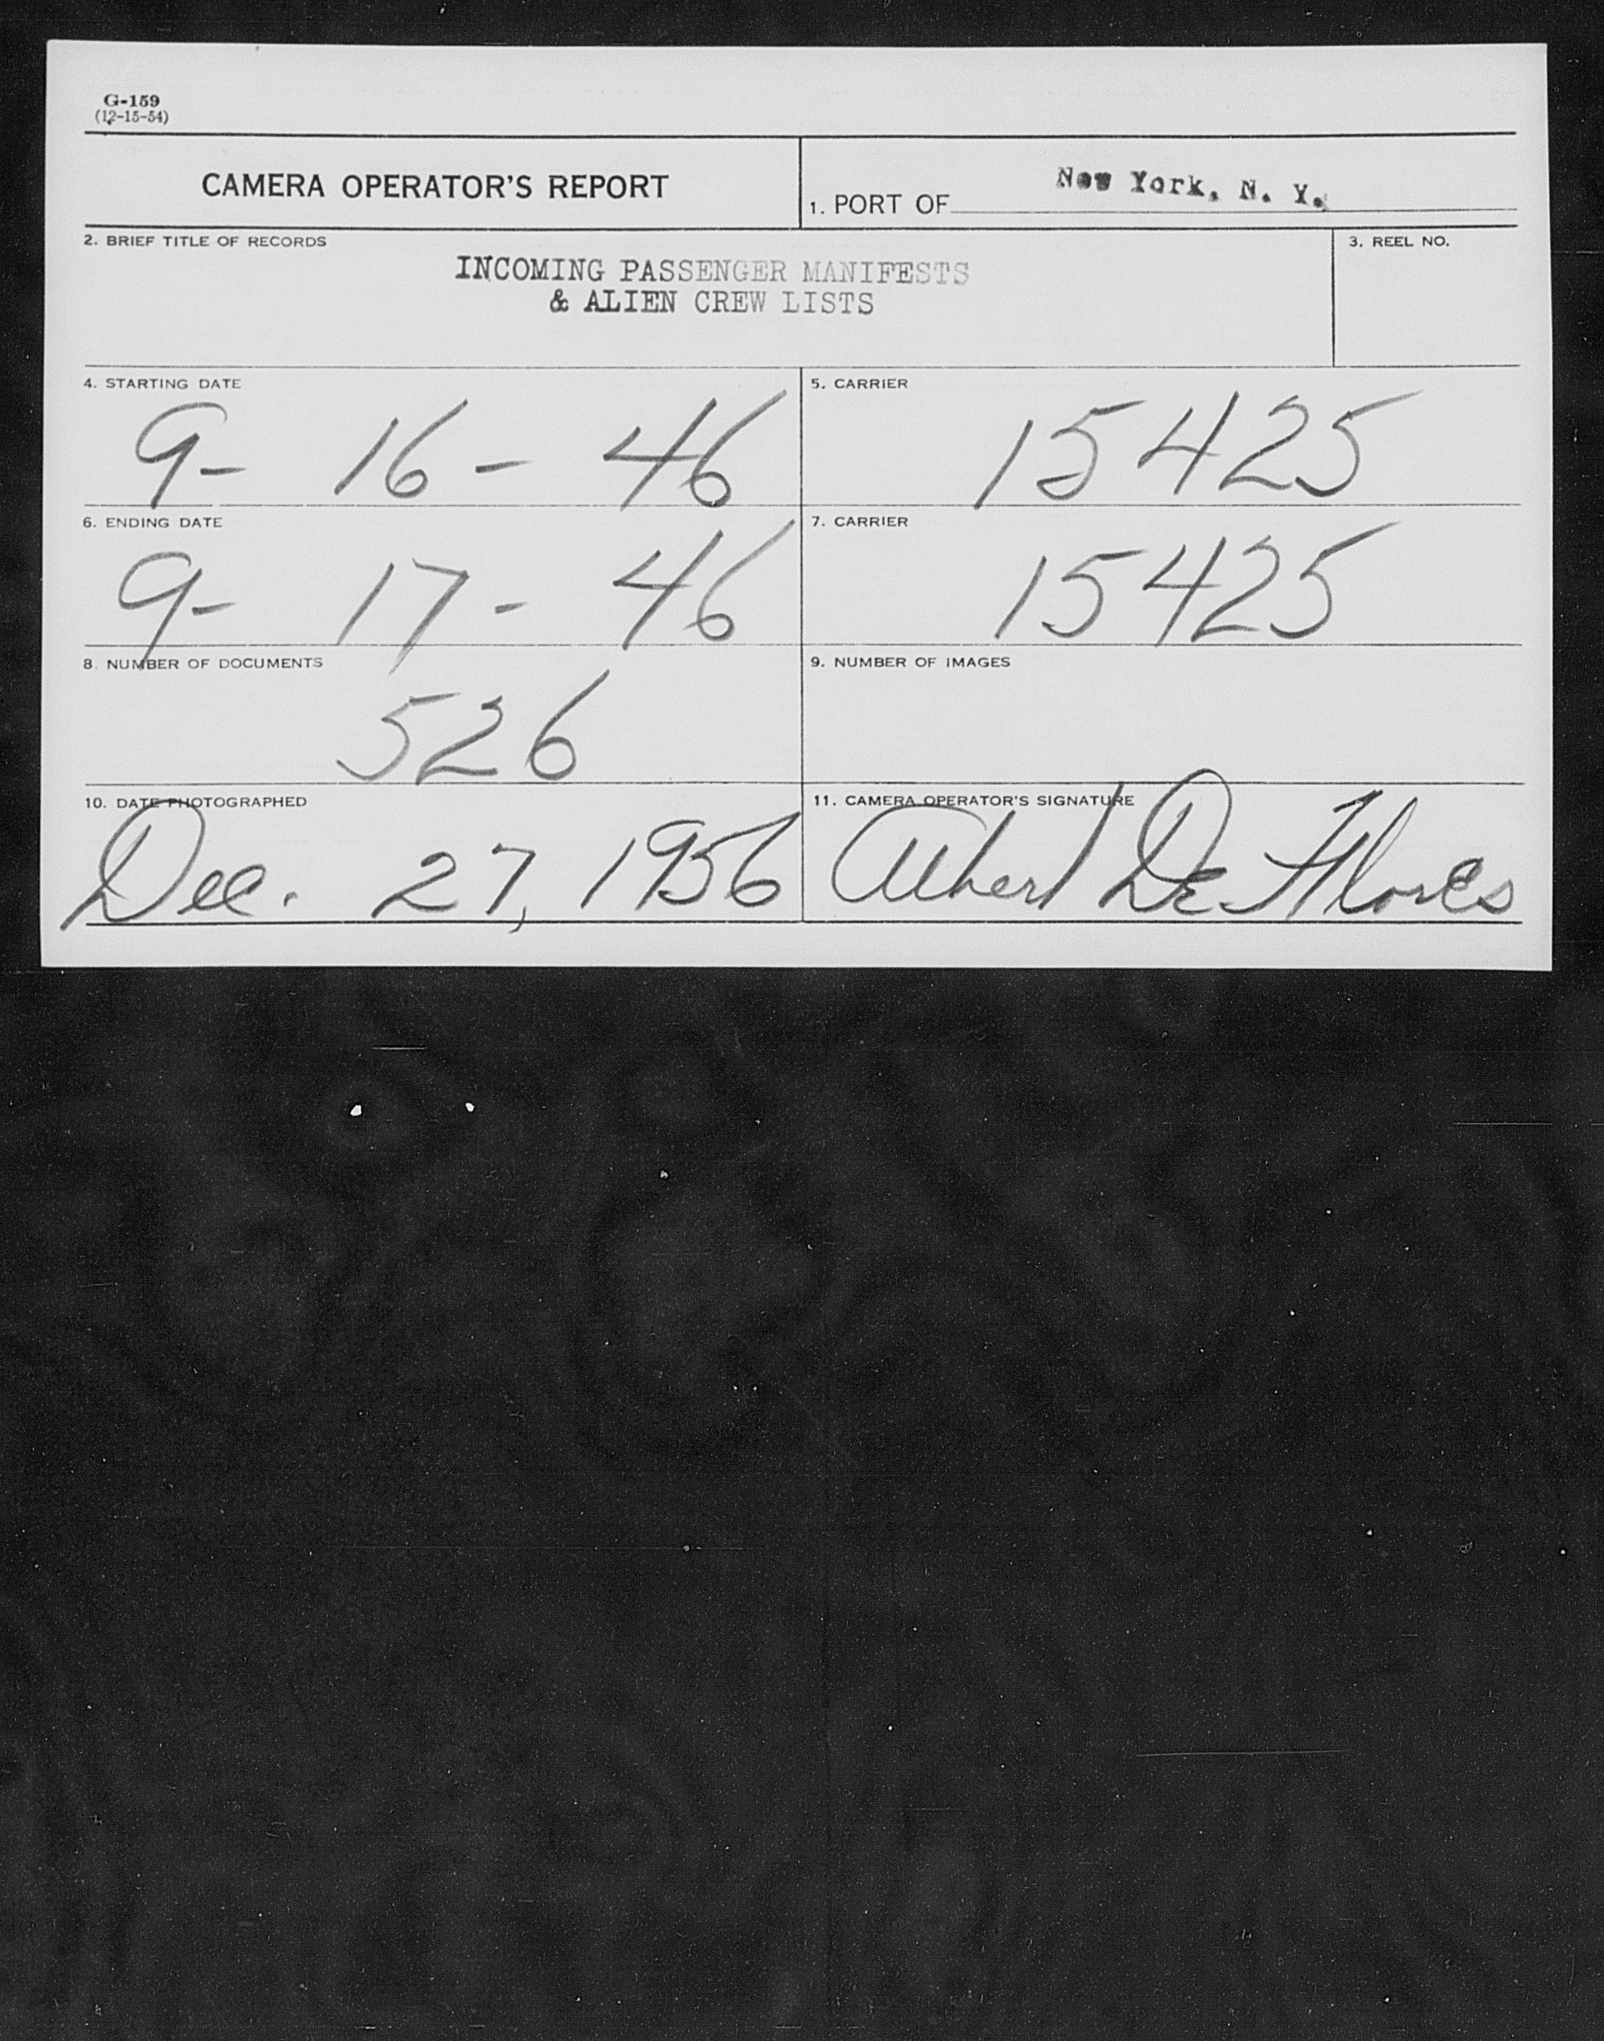 G-159
(12-15-54)
CAMERA OPERATOR'S REPORT
1. PORT OF New York, N. Y.
2. BRIEF TITLE OF RECORDS
INCOMING PASSENGER MANIFESTS
& ALIEN CREW LISTS
3. REEL NO.
4. STARTING DATE
9- 16- 46
5. CARRIER
15425
6. ENDING DATE
9- 17- 46
7. CARRIER
15425
8. NUMBER OF DOCUMENTS
526
9. NUMBER OF IMAGES
10. DATE PHOTOGRAPHED
Dec. 27, 1956
11. CAMERA OPERATOR'S SIGNATURE
Albert De Flores